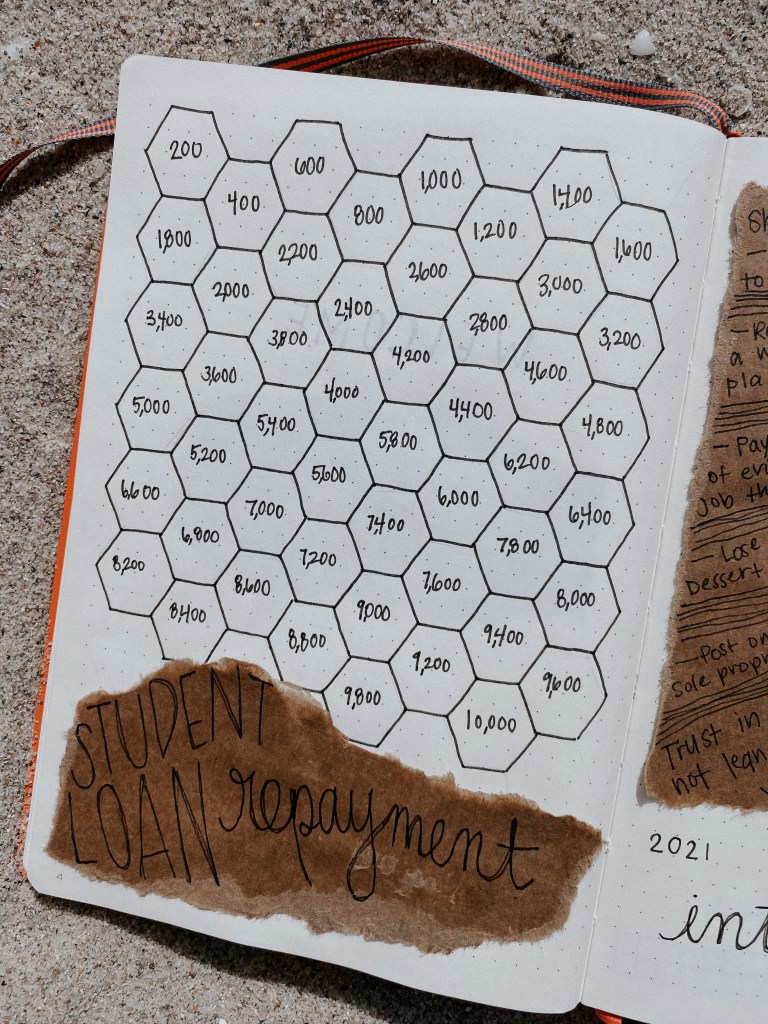 200 600 1,000 1,400
400 800 1,200 1,600
1,800 2,200 2,600 3,000
2,000 2,400 2,800 3,200
3,400 3,800 4,200 4,600
3,600 4,000 4,400 4,800
5,000 5,400 5,800 6,200
5,200 5,600 6,000 6,400
6,600 7,000 7,400 7,800
6,800 7,200 7,600 8,000
8,200 8,600 9,000 9,400
8,400 8,800 9,200 9,600
9,800 10,000
STUDENT
LOAN repayment
4
to
a
pla
- Pay
of evi
job th
- Lose
Dessert
- Post on
Sole propr
Trust in
not lean
2021
int